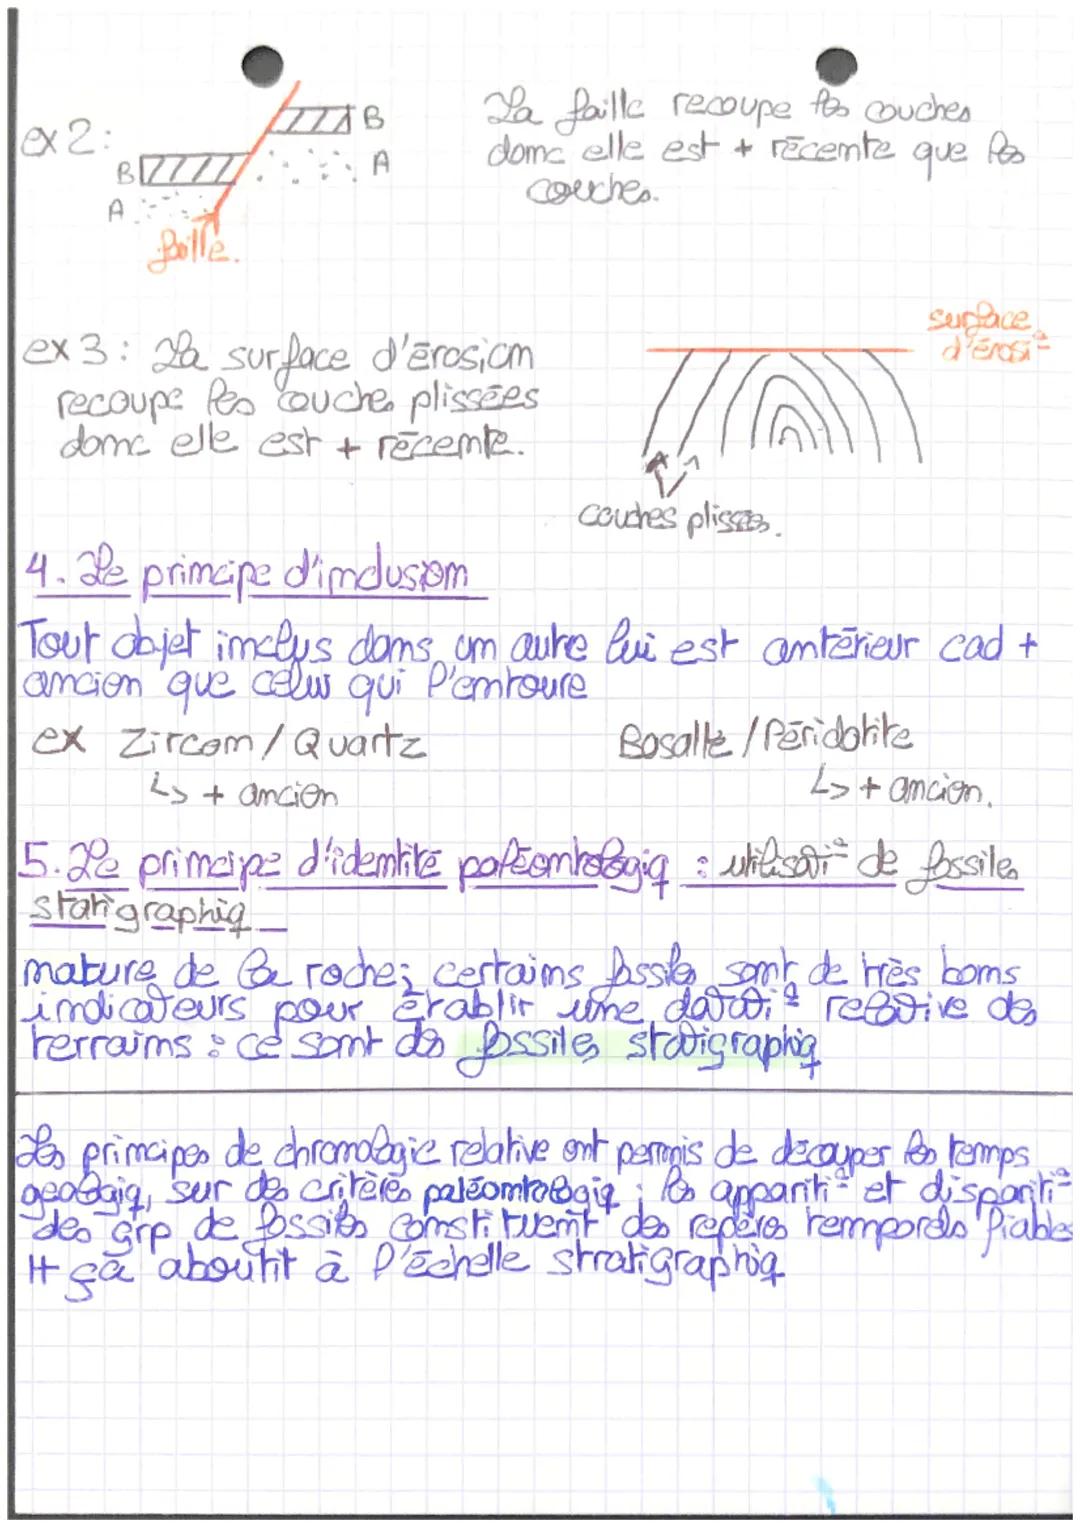 ex 2:
B
A
B
A
faille.
La faille recoupe les couches
donc elle est + récente que les
couches.
ex 3 : La surface d'érosion
recoupe les couches plissées
donc elle est + récente.
surface
d'érosi°
couches plissées.
4. Le principe d'inclusion
Tout objet inclus dans un autre lui est antérieur cad +
ancien que celui qui l'entoure
ex Zircon / Quartz
↳ + ancien
Basalte / Péridotite
↳ + ancien.
5. Le principe d'identité paléontologiq : utilisati° de fossiles
stratigraphiq
nature de la roche; certains fossiles sont de très bons
indicateurs pour établir une datati° relative des
terrains : ce sont des fossiles stratigraphiq
Les principes de chronologie relative ont permis de découper les temps
géologiq, sur des critères paléontologiq ; les appariti° et dispariti°
des grp de fossiles constituent des repères temporels fiables
tt ça aboutit à l'échelle stratigraphiq